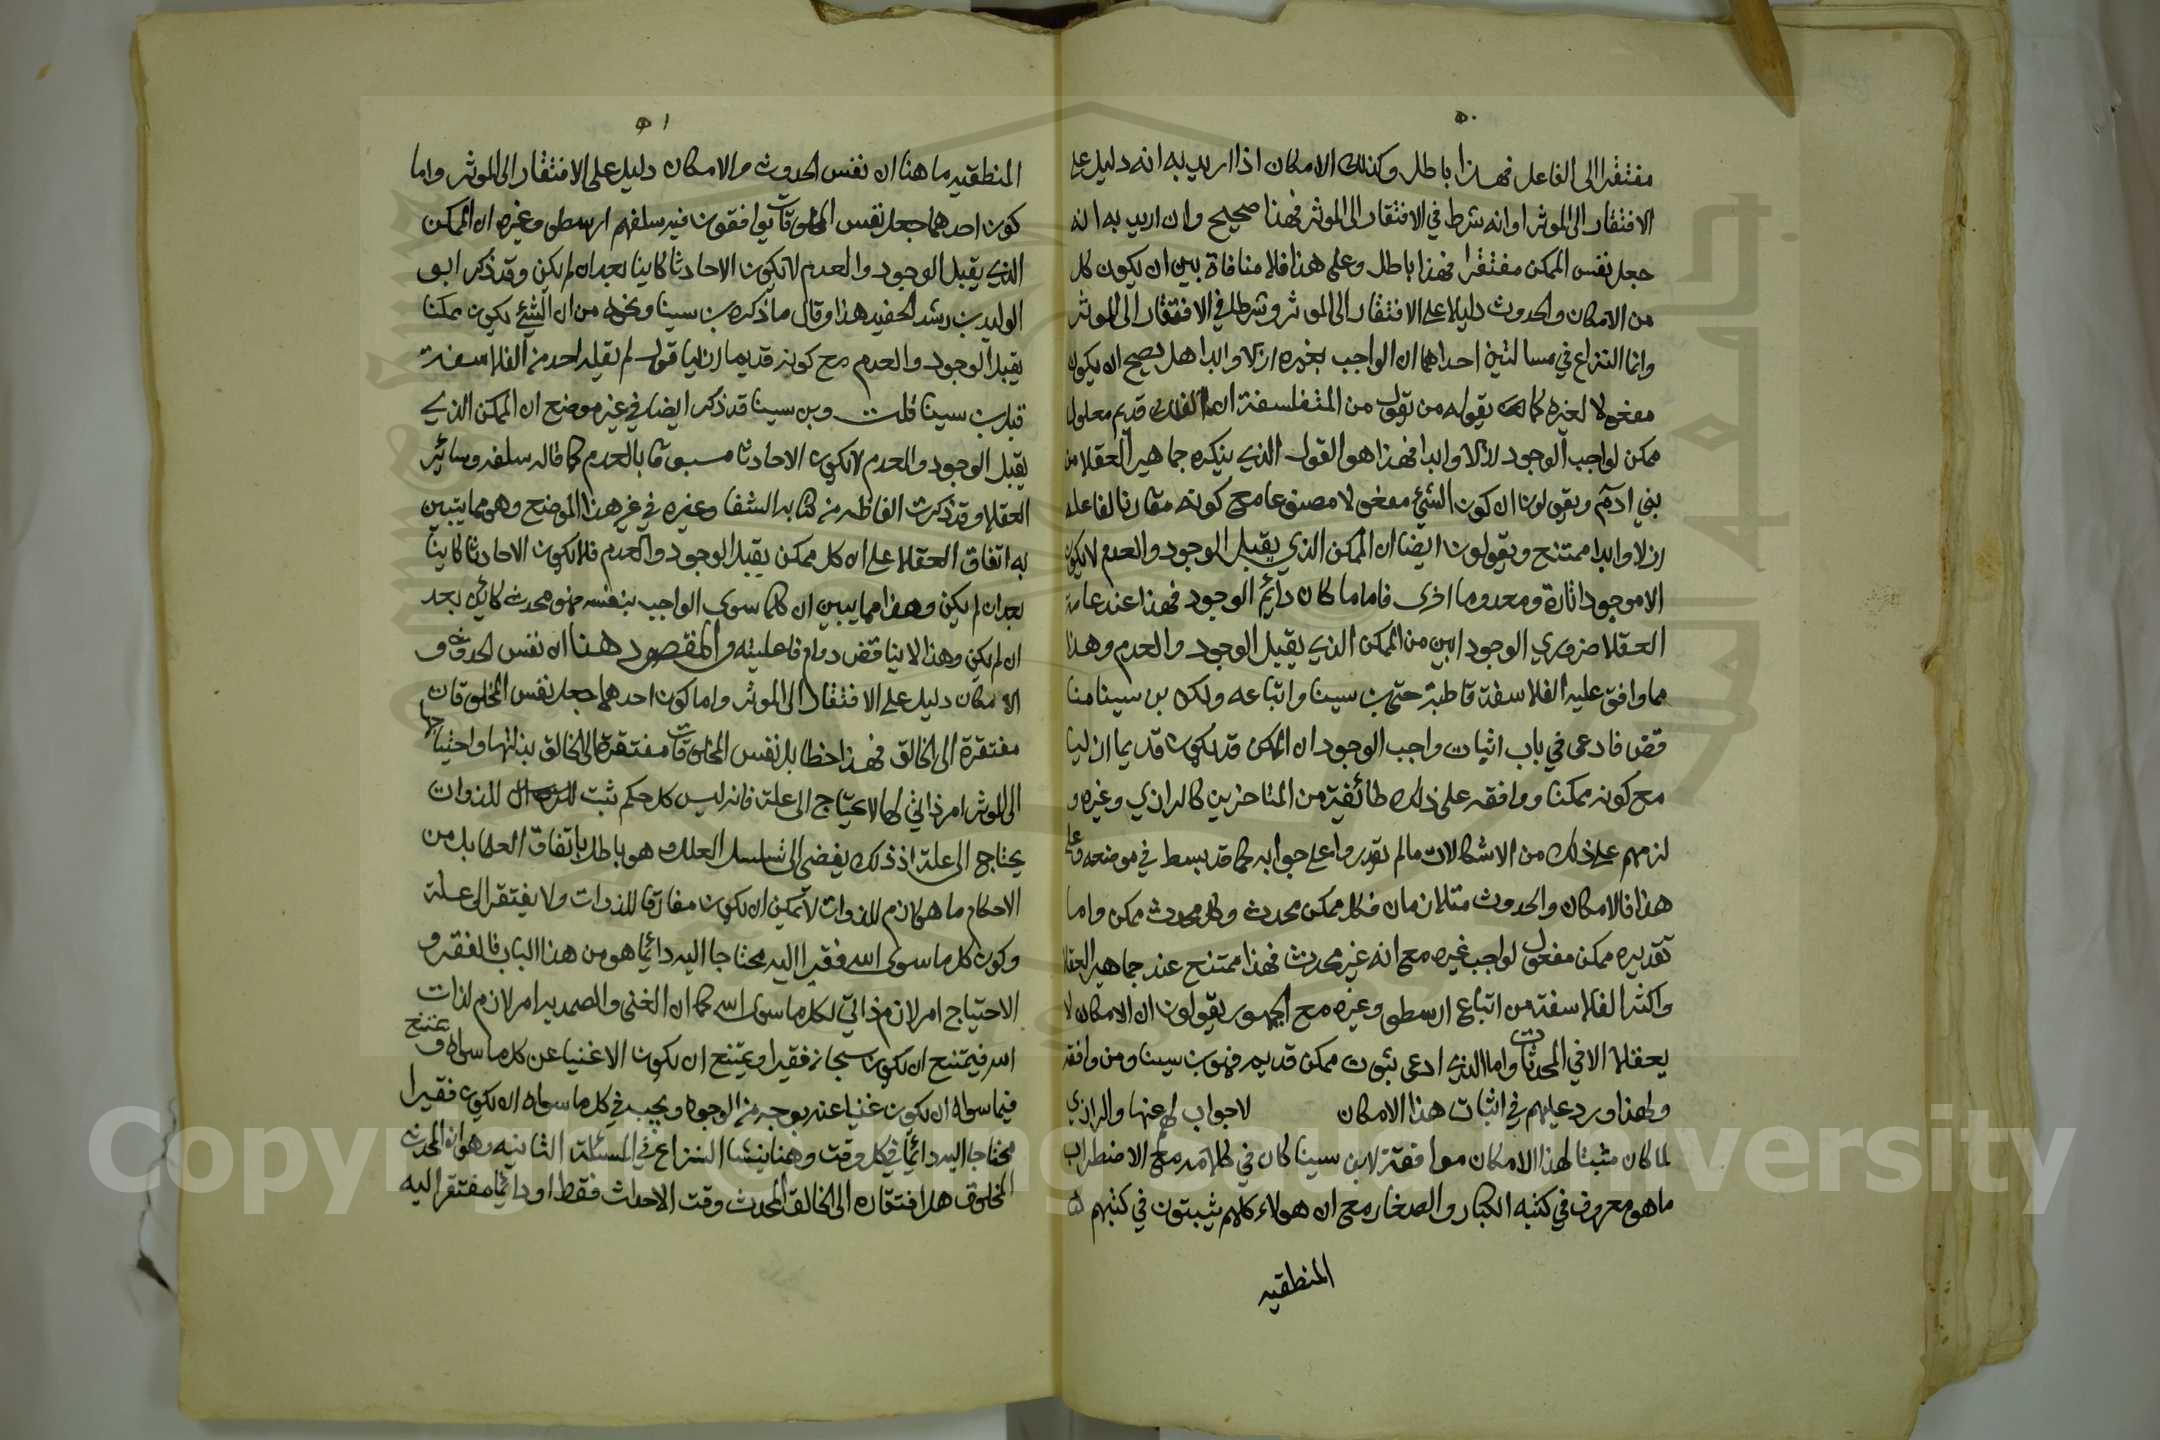 ٥٠
مفتقرا الى الفاعل فهذا باطل وكذلك الامكان اذا اريد به انه دليل على
الافتقار الى الموثر او انه شرط في الافتقار الى الموثر فهذا صحيح وان اريد به انه
جعل نفس الممكن مفتقرا فهذا باطل وعلى هذا فلا منافاة بين ان يكون كل
من الامكان والحدوث دليلا على الافتقار الى الموثر وشرطا في الافتقار الى الموثر
وانما النزاع في مسالتين احداهما ان الواجب بغيره ازلا وابدا هل يصح ان يكون
مفعولا لغيره كما يقوله من يقول من المتفلسفة ان الفلك قديم معلول
ممكن لواجب الوجود ازلا وابدا فهذا هو القول الذي ينكره جماهير العقلا من
بني ادم ويقولون ان كون الشئ مفعولا مصنوعا مع كونه مقارنا لفاعله
ازلا وابدا ممتنع ويقولون ايضا ان الممكن الذي يقبل الوجود والعدم لا يكون
الا موجودا تارة ومعدوما اخرى فاما ما كان دائم الوجود فهذا عند عامة
العقلا ضروري الوجود ليس من الممكن الذي يقبل الوجود والعدم وهذا
مما وافق عليه الفلاسفة قاطبة حتى بن سينا واتباعه ولكن بن سينا تنا
قض فادعى في باب اثبات واجب الوجود ان الممكن قد يكون قديما ازليا
مع كونه ممكنا ووافقه على ذلك طائفة من المتاخرين كالرازي وغيره و
لزمهم على ذلك من الاشكالات ما لم يقدروا على جوابه كما قد بسط في موضعه وعلى
هذا فالامكان والحدوث متلازمان فكل ممكن محدث وكل محدث ممكن واما
تقدير ممكن مفعول لواجب غيره مع انه غير محدث فهذا ممتنع عند جماهير العقلا
واكثر الفلاسفة من اتباع ارسطو وغيره مع الجمهور يقولون ان الامكان لا
يعقل الا في المحدثات واما الذي ادعى ثبوت ممكن قديم فهو بن سينا ومن وافقه
ولهذا ورد عليهم في اثبات هذا الامكان لا جواب لهم عنها والرازي
لما كان مثبتا لهذا الامكان موافقة لابن سينا كان في كلامه مع الاضطراب
ما هو معروف في كتبه الكبار والصغار مع ان هولاء كلهم يثبتون في كتبهم
المنطقيه
٥١
المنطقيه ما هنا ان نفس الحدوث والامكان دليل على الافتقار الى الموثر واما
كون احدهما جعل نفس المخلوقات يوافقون فيه سلفهم ارسطو وغيره ان الممكن
الذي يقبل الوجود والعدم لا يكون الا حادثا كاينا بعد ان لم يكن وقد ذكر ابو
الوليد بن رشد الحفيد هذا وقال ما ذكره بن سينا ونحوه من ان الشئ يكون ممكنا
يقبل الوجود والعدم مع كونه قديما ازليا قول لم يقله احد من الفلاسفة
قبل بن سينا قلت وبن سينا قد ذكر ايضا في غير موضع ان الممكن الذي
يقبل الوجود والعدم لا يكون الا حادثا مسبوقا بالعدم كما قاله سلفه وسائر
العقلا وقد ذكرت الفاظه من كتابه الشفا وغيره في غير هذا الموضع وهو مما يتبين
به اتفاق العقلا على ان كل ممكن يقبل الوجود والعدم فلا يكون الا حادثا كاينا
بعد ان لم يكن وهذا مما يبين ان كلما سوى الواجب بنفسه فهو محدث كائن بعد
ان لم يكن وهذا لا يناقض دوام فاعليته والمقصود هنا ان نفس الحدوث و
الامكان دليل على الافتقار الى الموثر واما كون احدهما جعل نفس المخلوقات
مفتقرة الى الخالق فهذا خطا بل نفس المخلوقات مفتقرة الى الخالق بذاتها واحتياجها
الى الموثر امر ذاتي لها لا يحتاج الى علة فانه ليس كل حكم ثبت للذوات
يحتاج الى علة اذ ذلك يفضي الى تسلسل العلل وهو باطل باتفاق العلما بل من
الاحكام ما هو لازم للذوات لا يمكن ان يكون مفارقا للذوات ولا يفتقر الى علة
وكون كل ما سوى الله فقيرا اليه محتاجا اليه دائما هو من هذا الباب فالفقر و
الاحتياج امر لازم ذاتي لكل ما سوى الله كما ان الغنى والصمديه امر لازم لذات
الله فيمتنع ان يكون سبحانه فقيرا ويمتنع ان يكون الا غنيا عن كل ما سواه ويمتنع
فيما سواه ان يكون غنيا عنه بوجه من الوجوه ويجب في كل ما سواه ان يكون فقيرا
محتاجا اليه دائما في كل وقت وهنا ينشا النزاع في المسئلة الثانيه وهو ان المحدث
المخلوق هل افتقاره الى الخالق المحدث وقت الاحداث فقط او دائما مفتقر اليه
Copyright © King Saud University